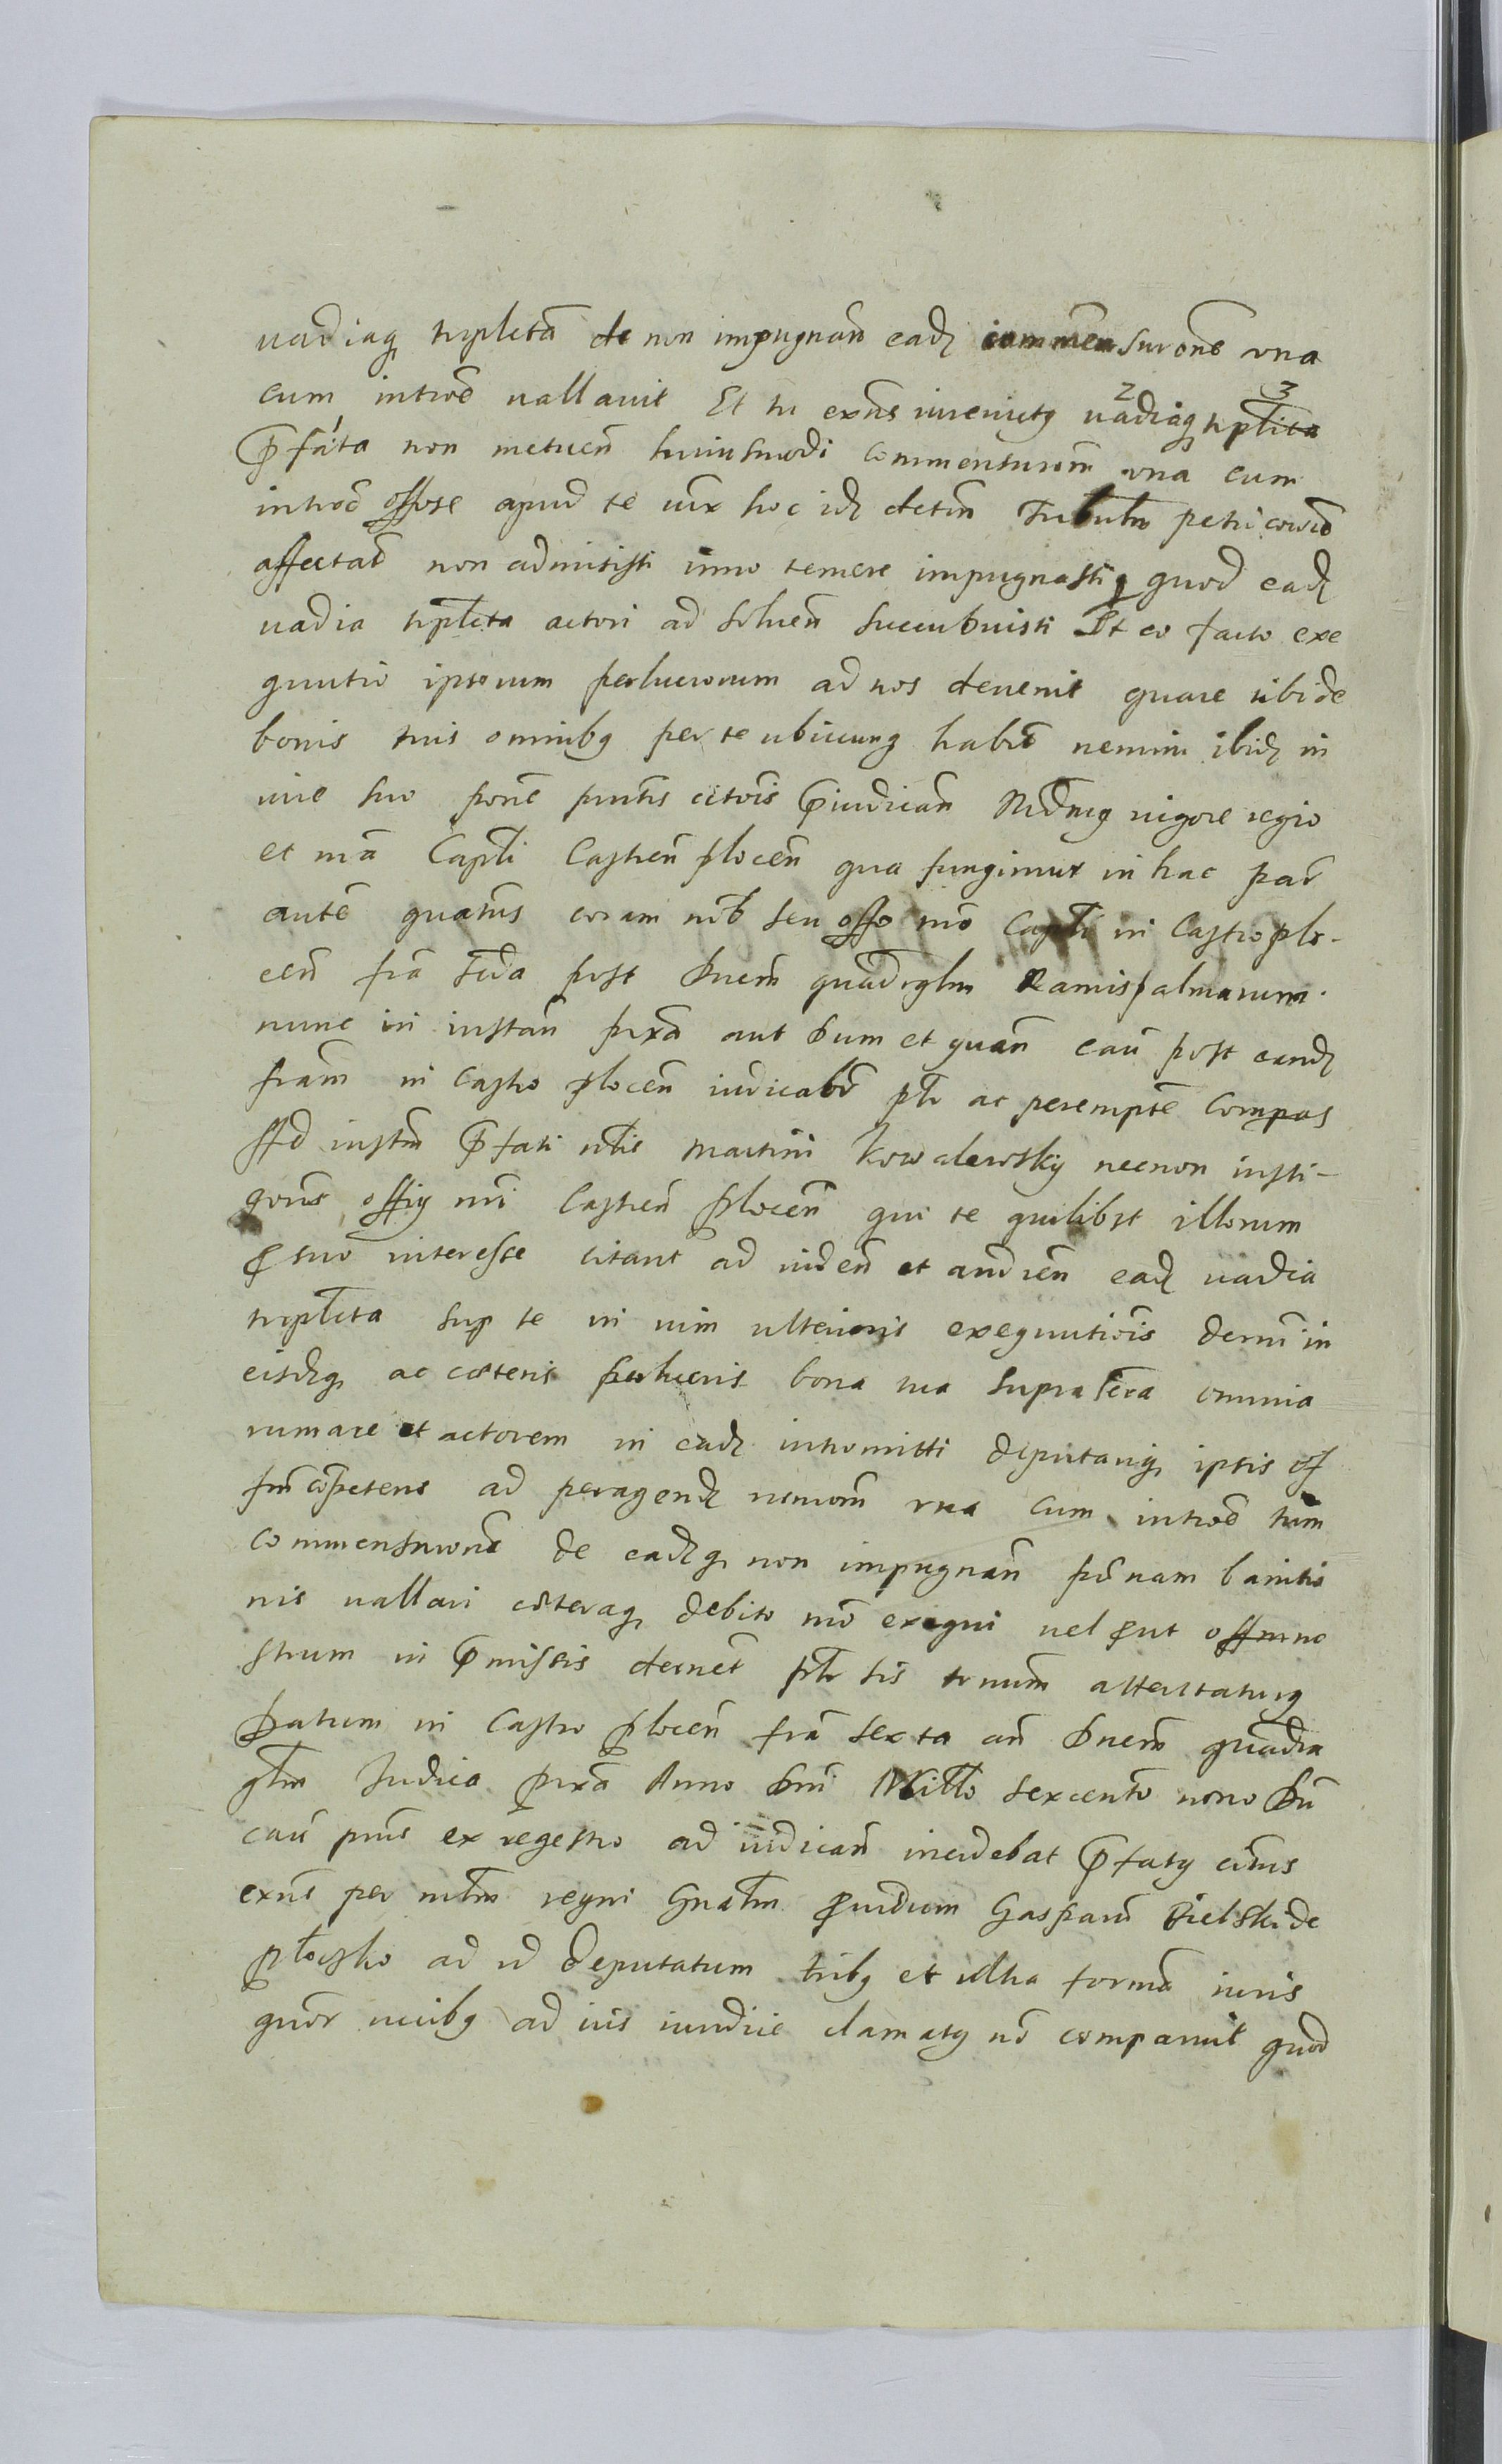 uadiaq3 triplicta de non impugnan̄ ead3 commensurone vna
cum introe uallauit Et tu exn̄s iureiuctq uadiaq3 2 tiplicta 3
p̄fata non metuen̄ huiusmodi commensuronem vna cum
introe offose apud te iux hoc id3 detm̄ Tribuln̄ petricouien̄
affectat̄ non admisisti imo temere impugnasti quod ead3
uadia triplicta actori ad soluen̄ succubuisti Et eo facto exe
quutio ipsorum perlucrorum ad nos deuenit quare tibi de
bonis tuis omnibq per te ubicunq habit̄ nemini ibid3 in
iure suo pone pn̄tis citois p̄iudican̄ Mādmq uigore regio
et mā Capli Castren̄ plocen̄ qua fungimur in hac par̄
autē quatn̄s coram nob̄ seu offo nrō Capli in Castro plo-
cen̄ fr̄a scd̄a post Dnem̄ quadrglm Ramispalmarum
nunc in instan̄ prxā aut dum et quan̄ cau post eand3
fram̄ in Castro plocen̄ iudicabr̄ ptr ac perempte compas
Ad instm̄ p̄fati nblis Martini Kowalewsky necnon insti-
goris offiy nri Castren̄ plocen̄ qui te quilibet illorum
p suo interesse citant ad uiden̄ et audien̄ ead3 uadia
triplicta sup te in uim ulterioris exequutiois decrni in
eisdq3 ac cæteris perlucris bona tua supra scrā omnia
rumare et actorem in ead3 intromitti deputariq3 ipsis off
fm̄ cōpetens ad peragend3 rumom̄ vna cum introe tum
commensurone de eadq3 non impugnan̄ pœnam banitio
nis uallari cæteraq3 debito mō exequi uel put offmno
strum in p̄missis decruet ptr sis trnum attentaturq
Datum in Castro plocen̄ fr̄a sexta an̄ Dnem̄ quadra
glm Judica prxā Anno Dni Millo sexcento nono Dū
cau pn̄s ex regestro ad iudican̄ incidebat p̄fatq citus
exns per mtlm regni Gnalm puidum Gasparū Bielski de
plocsko ad id deputatum tribq et ultra formā iuris
quor uicibq ad ius iundice clamatq nō comparuit quod